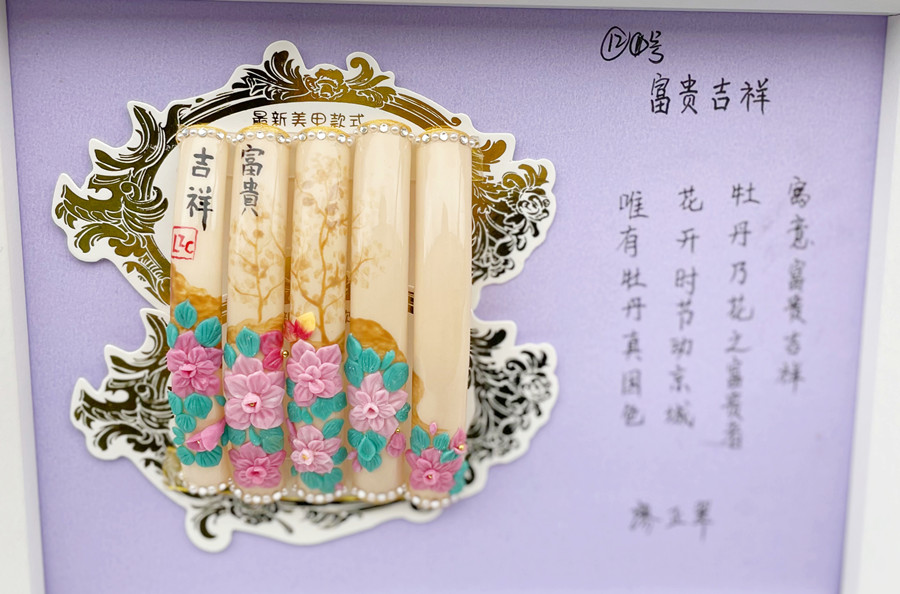 最新美甲款式
富貴
吉祥
LZC
⑫号
富贵吉祥
寓意富贵吉祥
牡丹乃花之富贵者
花开时节动京城
唯有牡丹真国色